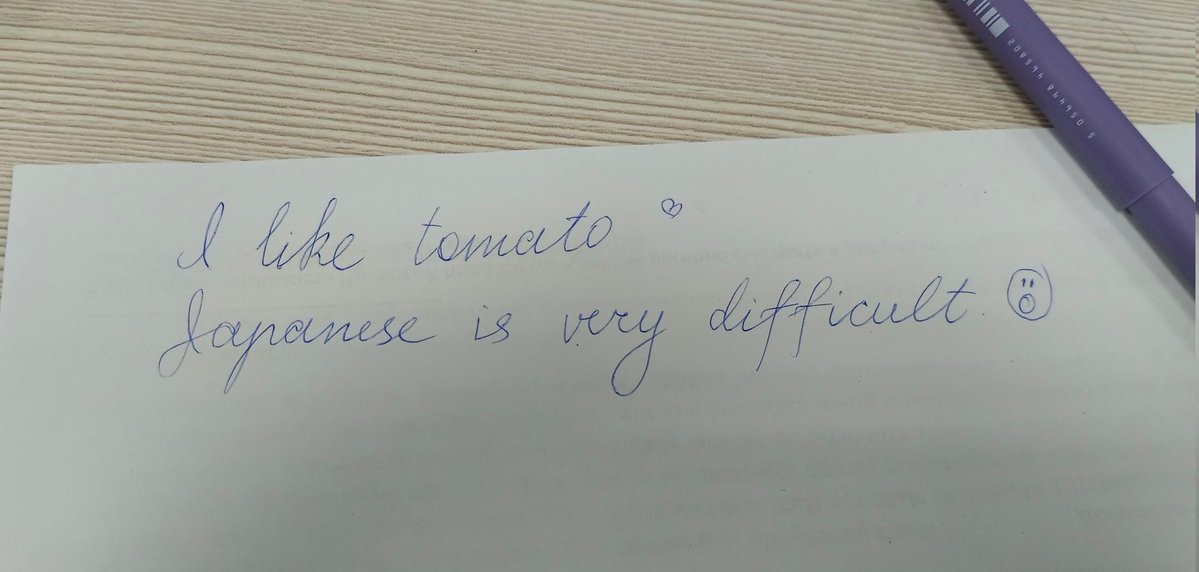 I like tomato
Japanese is very difficult.